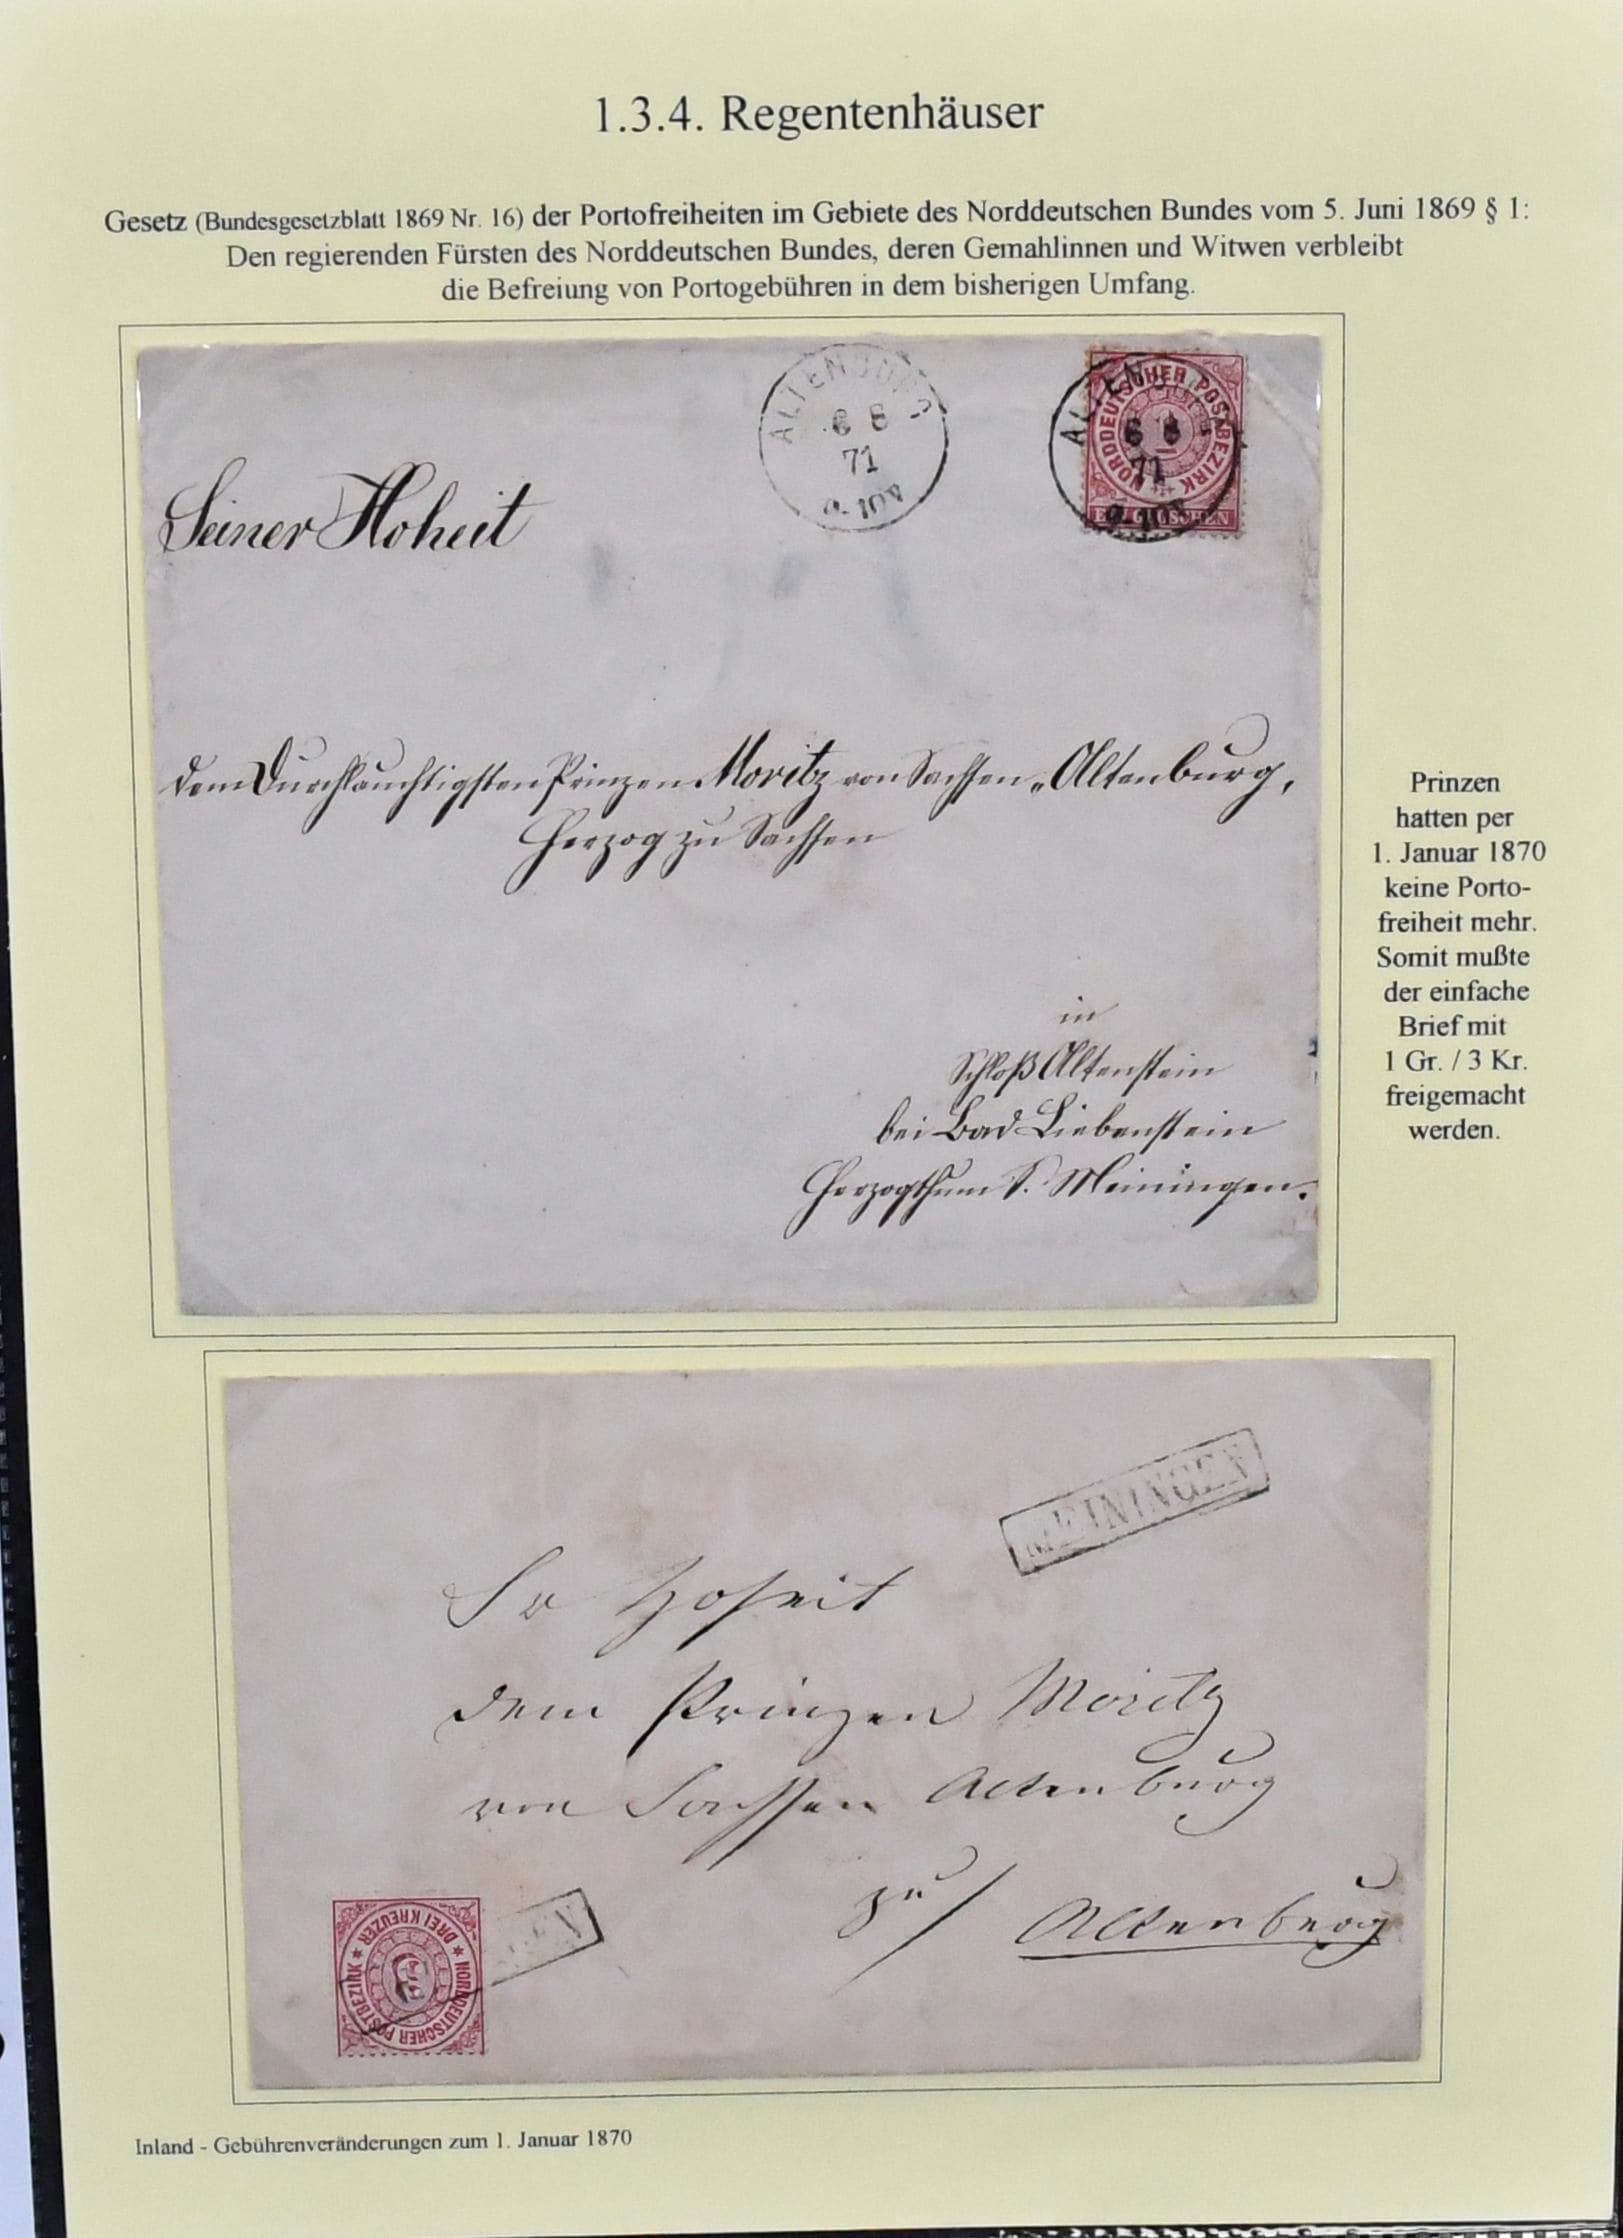 1.3.4. Regentenhäuser
Gesetz (Bundesgesetzblatt 1869 Nr. 16) der Portofreiheiten im Gebiete des Norddeutschen Bundes vom 5. Juni 1869 § 1:
Den regierenden Fürsten des Norddeutschen Bundes, deren Gemahlinnen und Witwen verbleibt
die Befreiung von Portogebühren in dem bisherigen Umfang.
ALTENBURG
6 8
71
9-10V
ALTEN
6 8
71
9-10V
NORDDEUTSCHER POSTBEZIRK
1
EIN GROSCHEN
Seiner Hoheit
dem Durchlauchtigsten Prinzen Moritz von Sachsen-Altenburg,
Herzog zu Sachsen
in
Schloß Altenstein
bei Bad Liebenstein
Herzogthum S. Meiningen.
Prinzen
hatten per
1. Januar 1870
keine Porto-
freiheit mehr.
Somit mußte
der einfache
Brief mit
1 Gr. / 3 Kr.
freigemacht
werden.
MEININGEN
Sr Hoheit
dem Prinzen Moritz
von Sachsen Altenburg
zu
Altenburg
NORDDEUTSCHER POSTBEZIRK * DREI KREUZER *
3
EN
Inland - Gebührenveränderungen zum 1. Januar 1870